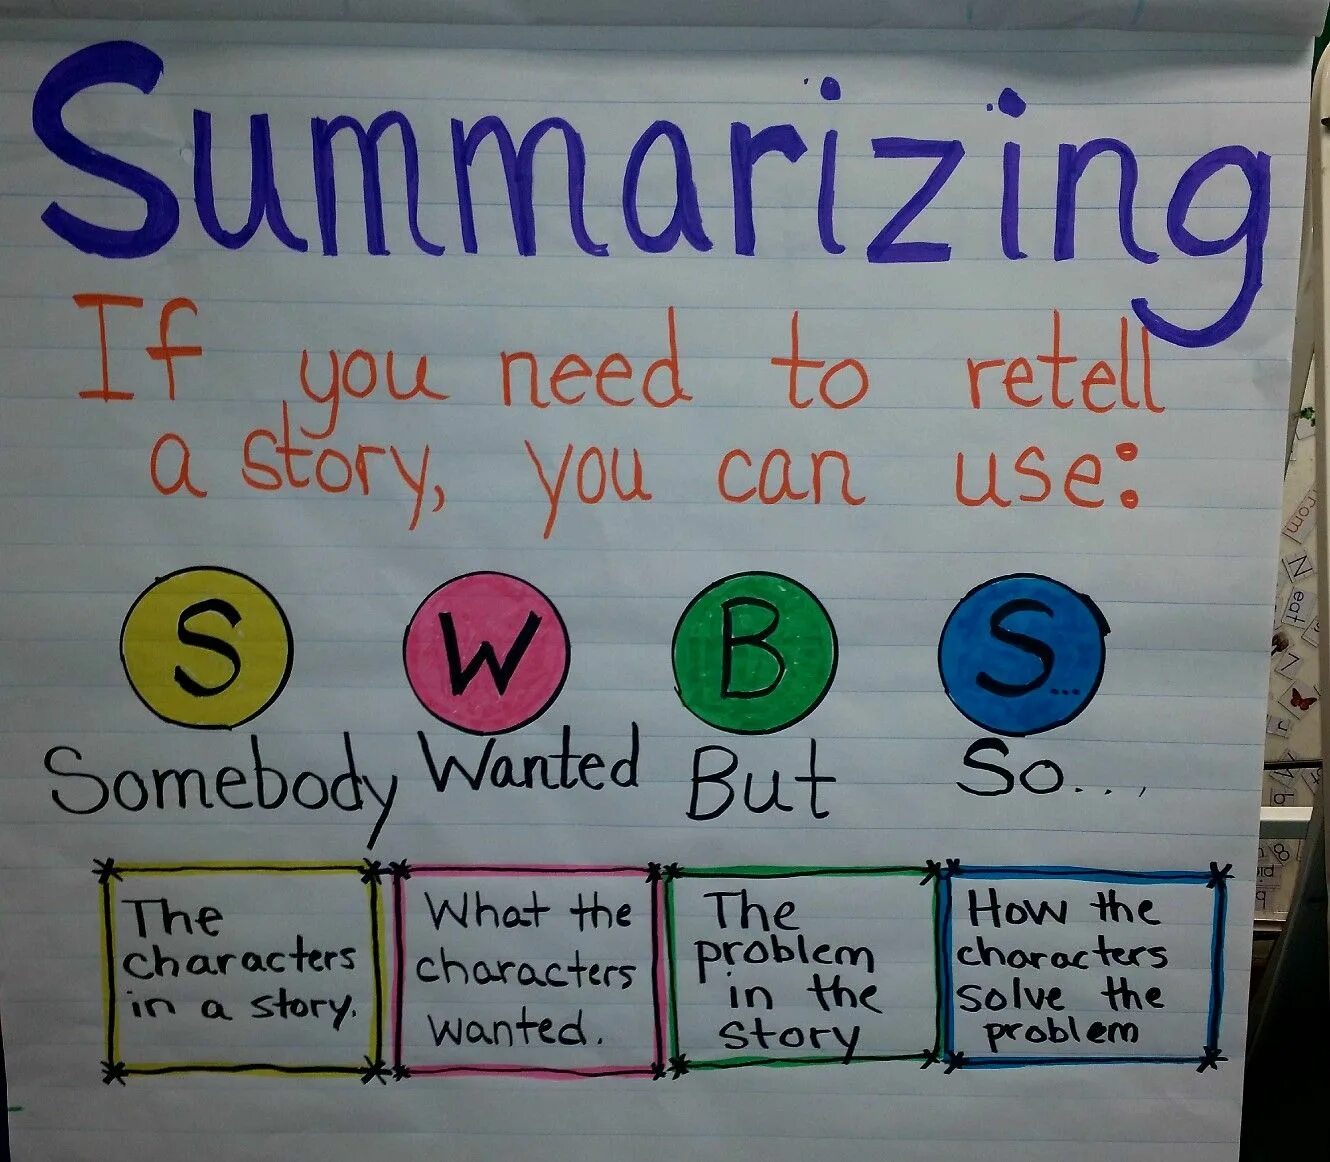 Summarizing
If you need to retell
a story, you can use:
S W B S...
Somebody Wanted But So...,
The
characters
in a story.
What the
characters
wanted.
The
problem
in the
story
How the
characters
solve the
problem
from
N
eat